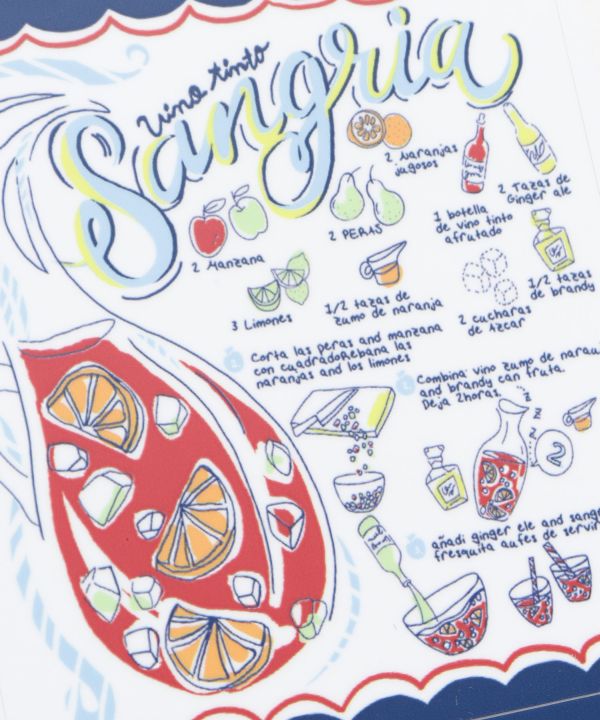 vino tinto
Sangria
2 Naranjas
jugosos
2 Tazas de
Ginger ale
2 PERAS
1 botella
de vino tinto
afrutado
2 Manzana
1/2 tazas
de brandy
3 Limones
1/2 tazas de
zumo de naranja
2 cucharas
de Azcar
1
Corta las peras and manzana
con cuadroRebana las
naranjas and los limones
Combina vino zumo de
and brandy can fruta.
Deja 2horas.
z
z
z
2
añadi ginger ele and
fresquita aufes de